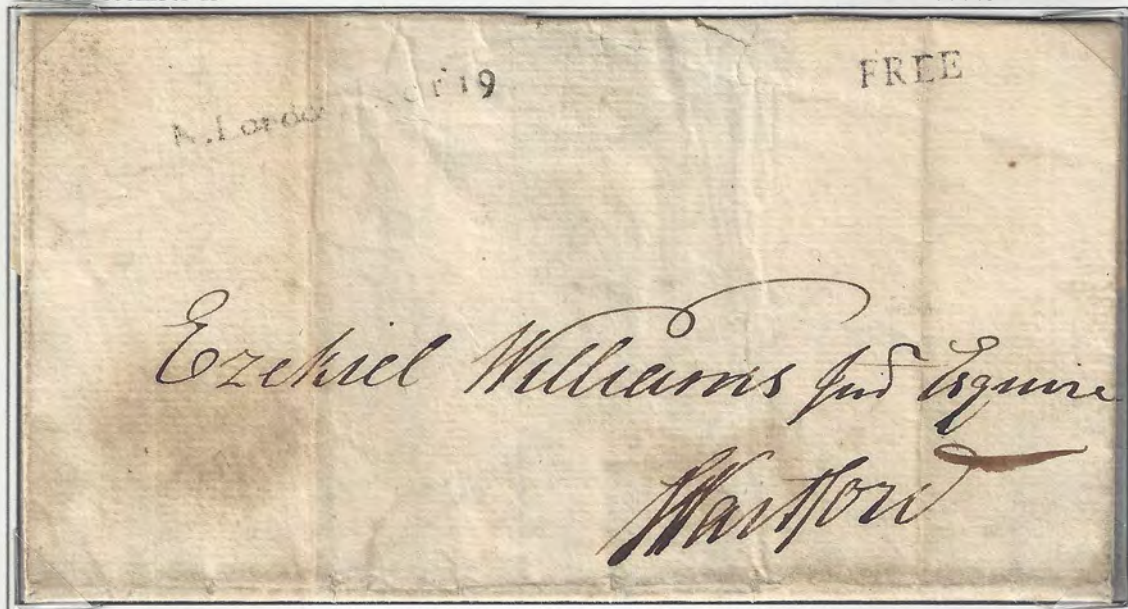 N. London 19 FREE
Ezekiel Williams Junr Esquire
Hartford